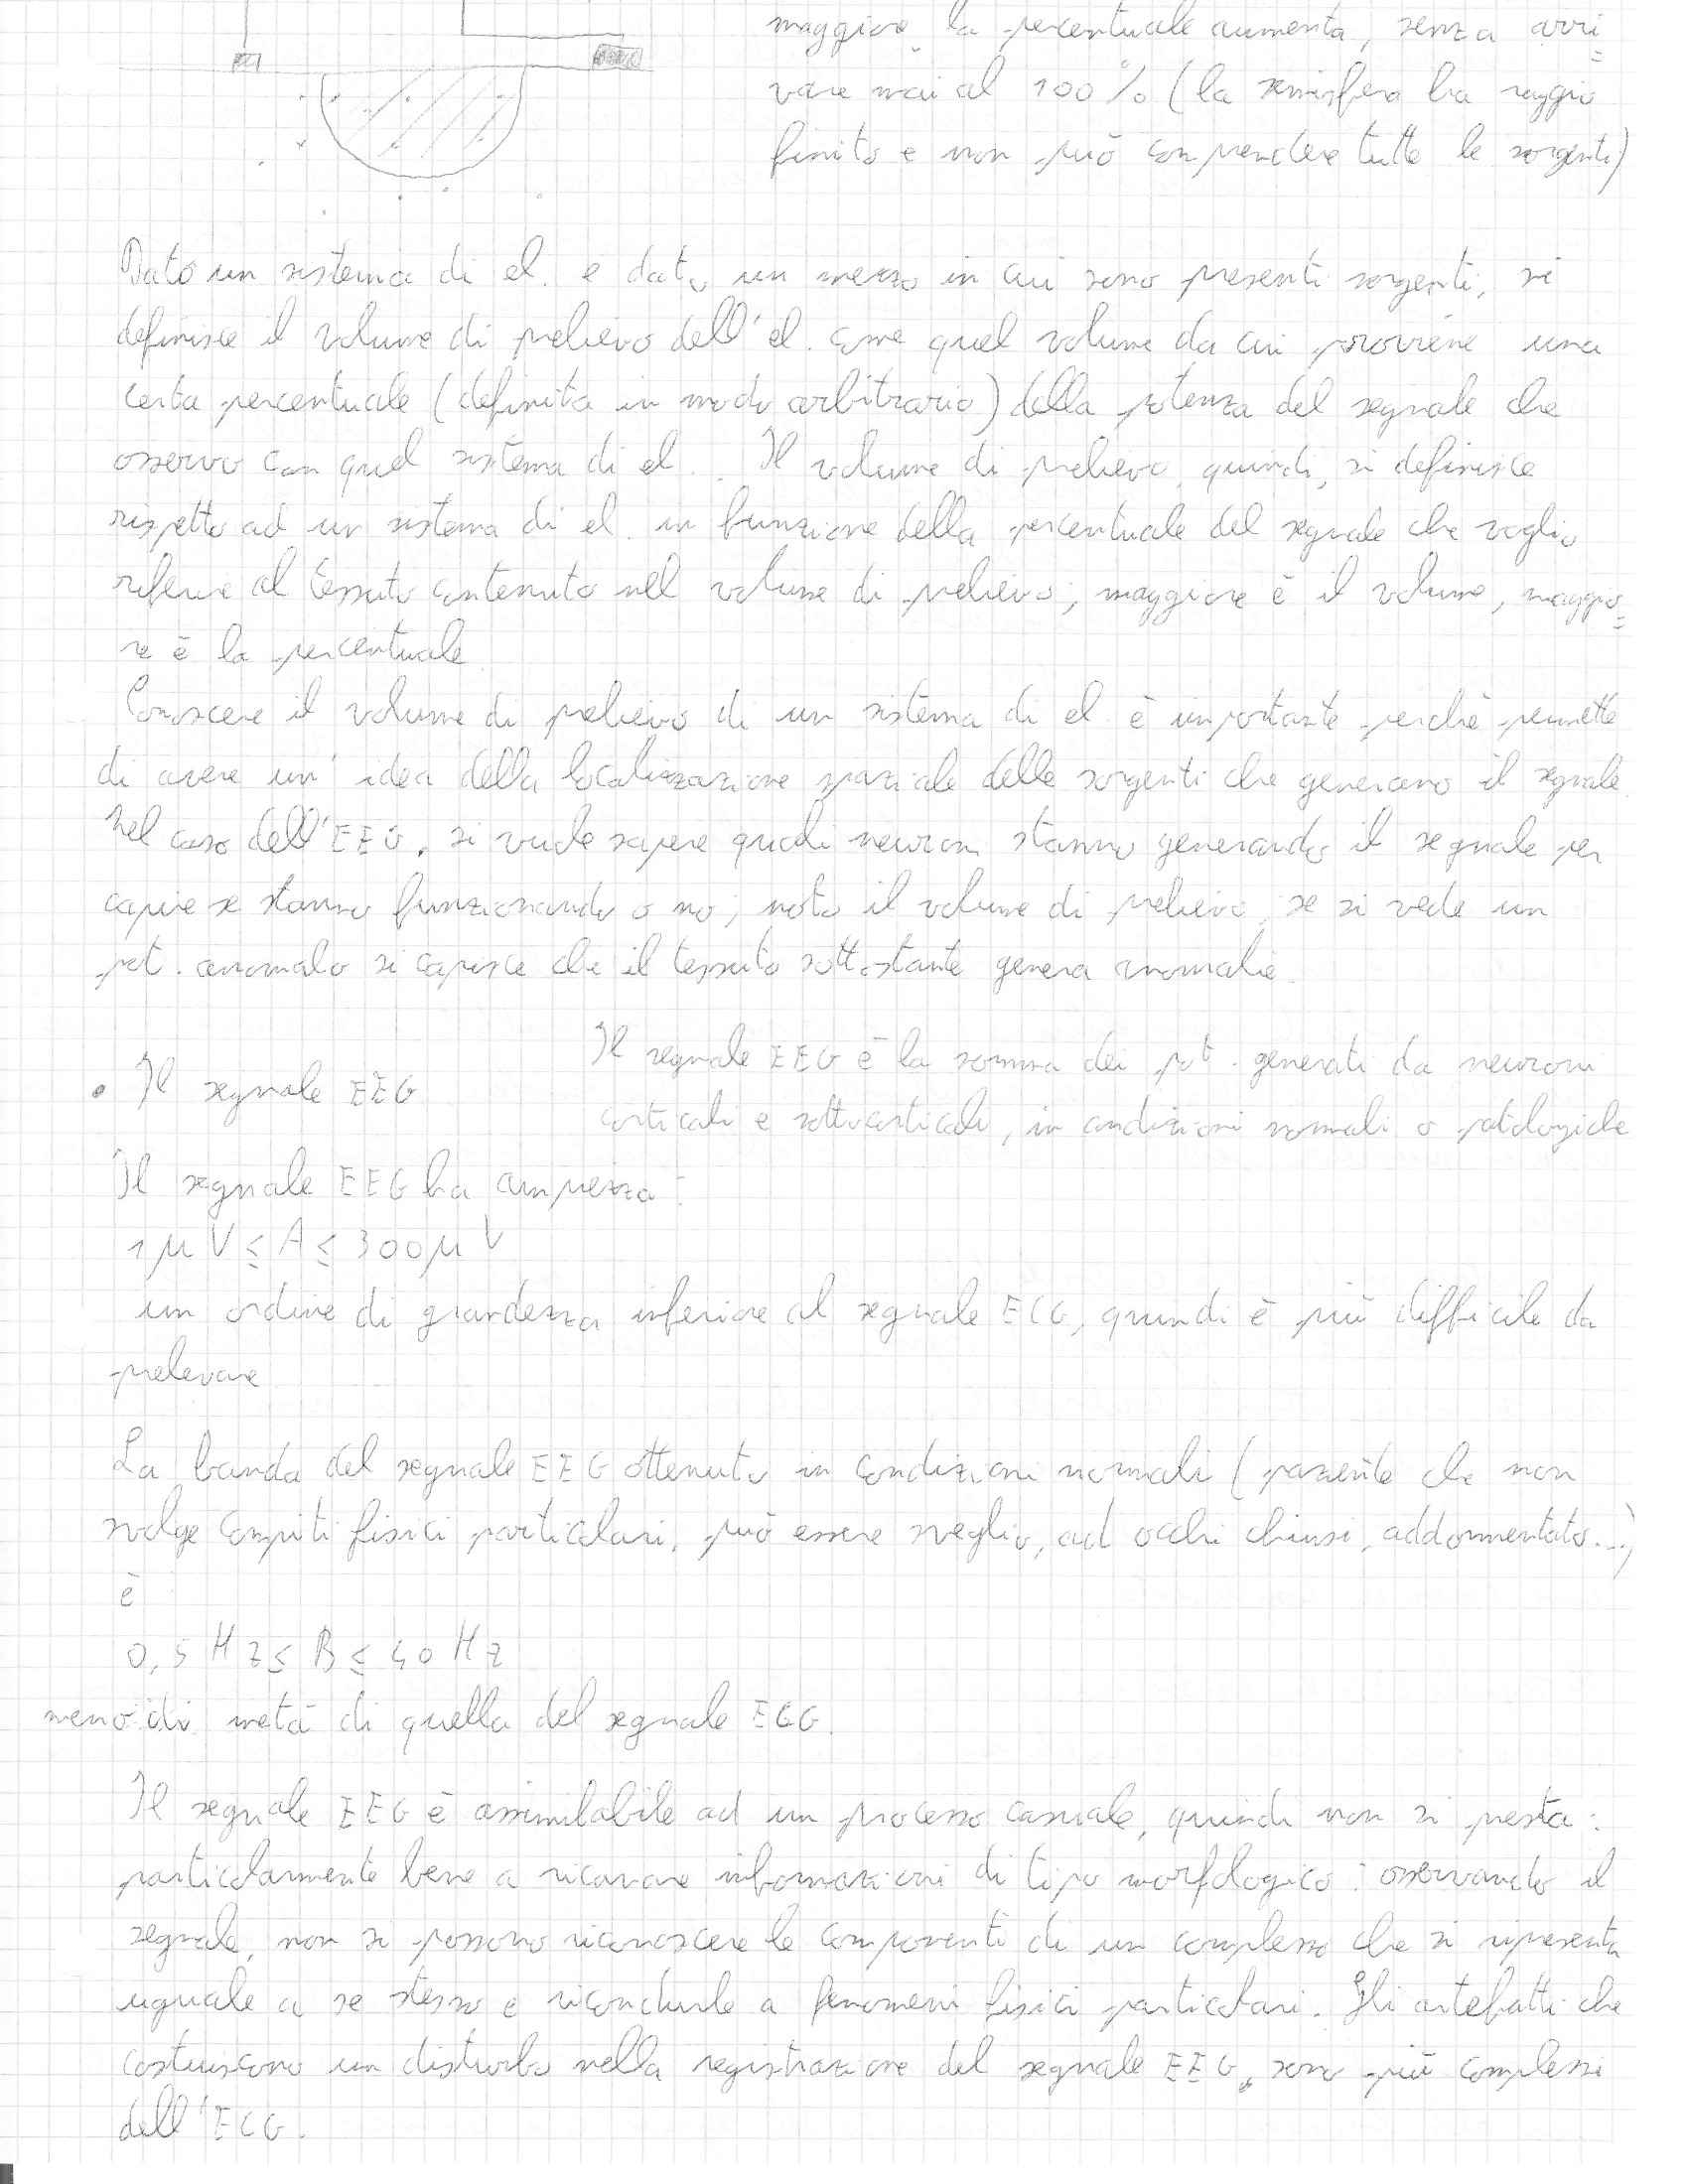 maggiore la percentuale aumenta, senza arri=
vare mai al 100% (la semisfera ha raggio
finito e non può comprendere tutte le sorgenti)
Dato un sistema di el. e dato un mezzo in cui sono presenti sorgenti, si
definisce il volume di prelievo dell'el. come quel volume da cui proviene una
certa percentuale (definita in modo arbitrario) della potenza del segnale che
osservo con quel sistema di el.. Il volume di prelievo, quindi, si definisce
rispetto ad un sistema di el. in funzione della percentuale del segnale che voglio
riferire al tessuto contenuto nel volume di prelievo; maggiore è il volume, maggio=
re è la percentuale.
Conoscere il volume di prelievo di un sistema di el. è importante perchè permette
di avere un'idea della localizzazione spaziale delle sorgenti che generano il segnale.
Nel caso dell'EEG, si vuole sapere quali neuroni stanno generando il segnale per
capire se stanno funzionando o no; noto il volume di prelievo, se si vede un
pot. anomalo si capisce che il tessuto sottostante genera anomalie.
Il segnale EEG è la somma dei pot. generati da neuroni
• Il segnale EEG
corticali e sottocorticali, in condizioni normali o patologiche
Il segnale EEG ha ampiezza:
1μV ≤ A ≤ 300μV
un ordine di grandezza inferiore al segnale ECG, quindi è più difficile da
prelevare
La banda del segnale EEG ottenuto in condizioni normali (paziente che non
svolge compiti fisici particolari, può essere sveglio, ad occhi chiusi, addormentato...)
è
0,5 Hz ≤ B ≤ 40 Hz
meno di metà di quella del segnale ECG.
Il segnale EEG è assimilabile ad un processo casuale, quindi non si presta
particolarmente bene a ricavare informazioni di tipo morfologico: osservando il
segnale, non si possono riconoscere le componenti di un complesso che si ripresenta
uguale a se stesso e ricondurle a fenomeni fisici particolari. Gli artefatti che
costituiscono un disturbo nella registrazione del segnale EEG, sono più complessi
dell'ECG.